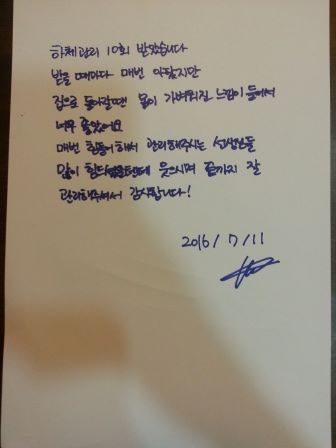 하체관리 10회 받았습니다
받을 때마다 매번 아팠지만
집으로 돌아갈땐 몸이 가벼워진 느낌이 들어서
너무 좋았어요
매번 힘들어 해서 관리해주시는 선생님들
많이 힘드셨을텐데 웃으시며 끝까지 잘
관리해주셔서 감사합니다!
2016/7/11